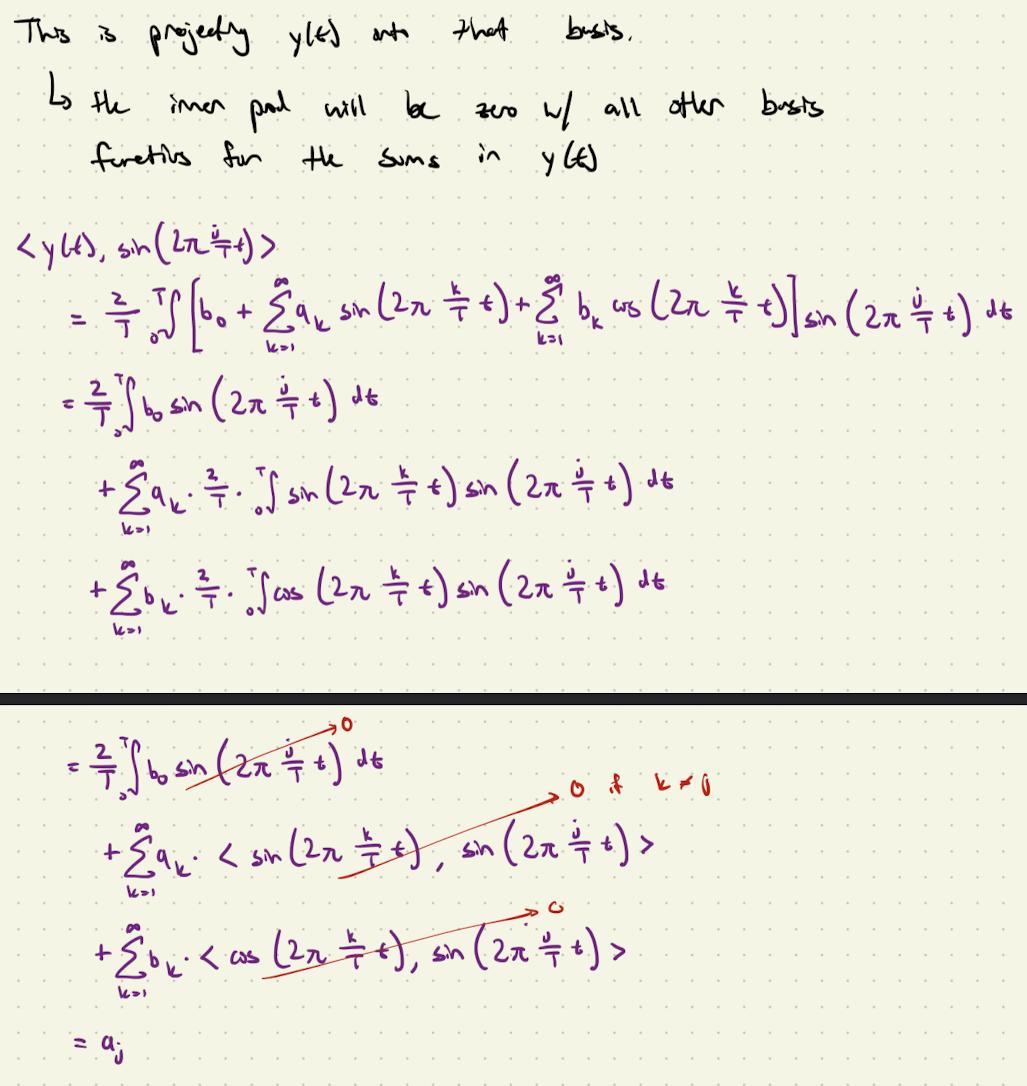 This is projecting y(t) onto that basis.
↳ the inner prod will be zero w/ all other basis
functions from the sums in y(t)
<y(t), sin(2π j/T t)>
= 2/T ₀∫ᵀ [b₀ + ∑_{k=1}^{∞} a_k sin(2π k/T t) + ∑_{k=1}^{∞} b_k cos(2π k/T t)] sin(2π j/T t) dt
= 2/T ₀∫ᵀ b₀ sin(2π j/T t) dt
+ ∑_{k=1}^{∞} a_k · 2/T · ₀∫ᵀ sin(2π k/T t) sin(2π j/T t) dt
+ ∑_{k=1}^{∞} b_k · 2/T · ₀∫ᵀ cos(2π k/T t) sin(2π j/T t) dt
= 2/T ₀∫ᵀ b₀ sin(2π j/T t) dt → 0
+ ∑_{k=1}^{∞} a_k · <sin(2π k/T t), sin(2π j/T t)> → 0 if k ≠ j
+ ∑_{k=1}^{∞} b_k · <cos(2π k/T t), sin(2π j/T t)> → 0
= a_j